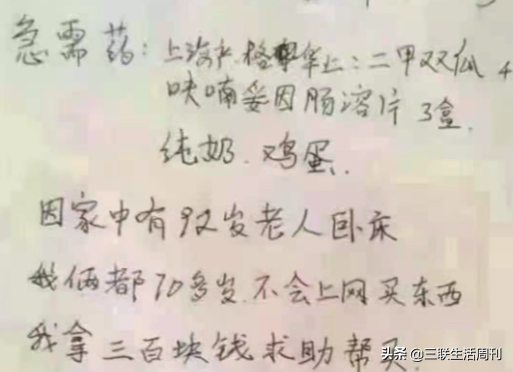 急需药：上海 格华止：二甲双瓜 4
呋喃妥因肠溶片 3盒.
纯奶. 鸡蛋.
因家中有92岁老人卧床
我俩都70多岁.不会上网买东西
我拿三百块钱求助帮买.
头条 @三联生活周刊